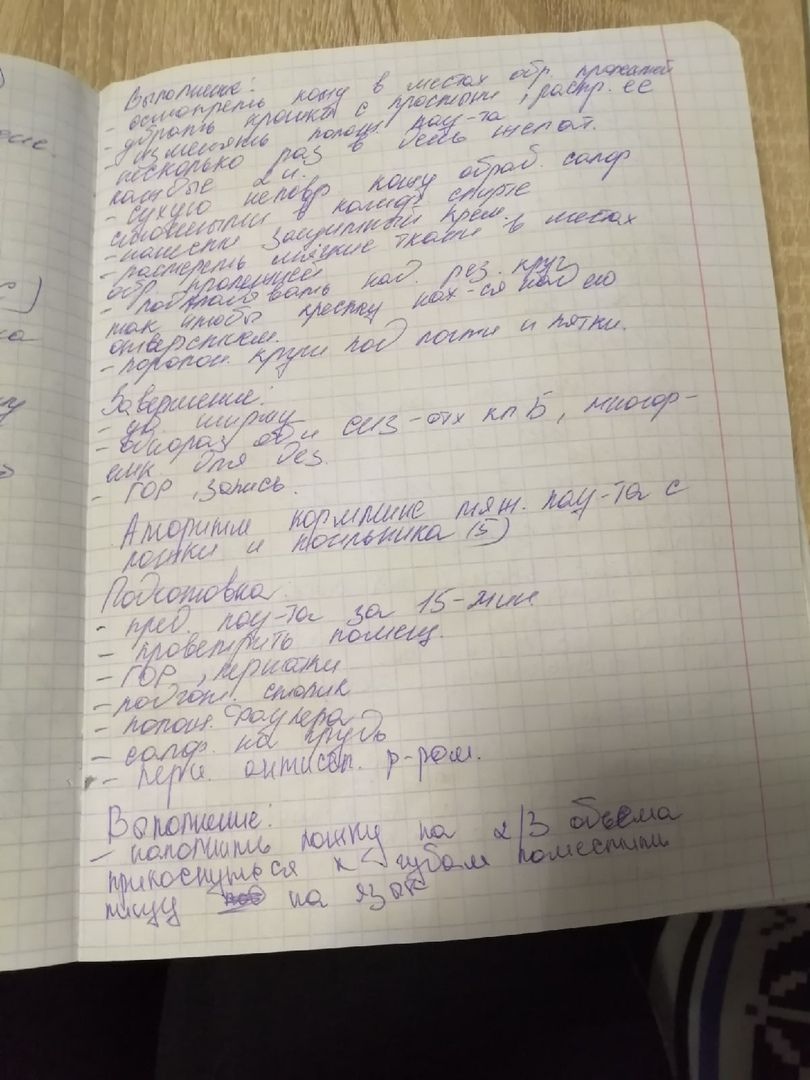 Выполнение:
- осмотреть кожу в местах обр. пролежней
- убрать крошки с простыни, распр. её
- изменять полож. пац-та
несколько раз в день желат.
каждые 2 ч.
- сухую неповр кожу обраб. салф
смоченными в камф спирте
- нанести защитный крем.
- растереть мягкие ткани в местах
обр пролежней
- подкладывать над. рез. круг
так чтобы крестец нах-ся над его
отверстием.
- поролон. круги под локти и пятки.
Завершение:
- ув. ширму
- однораз СИЗ - отх кл Б, многор-
емк. для дез.
- ГОР, запись.
Алгоритм кормление тяж. пац-та с
ложки и поильника 15)
Подготовка
- пред пац-та за 15-мин
- проветрить помещ.
- ГОР, перчатки
- подгот. столик
- полож. Фаулера
- салф. на грудь
- перч. антисеп. р-ром.
Выполнение:
- наполнить ложку на 2/3 объема
прикоснуться к губам поместить
пищу на язык
ение.